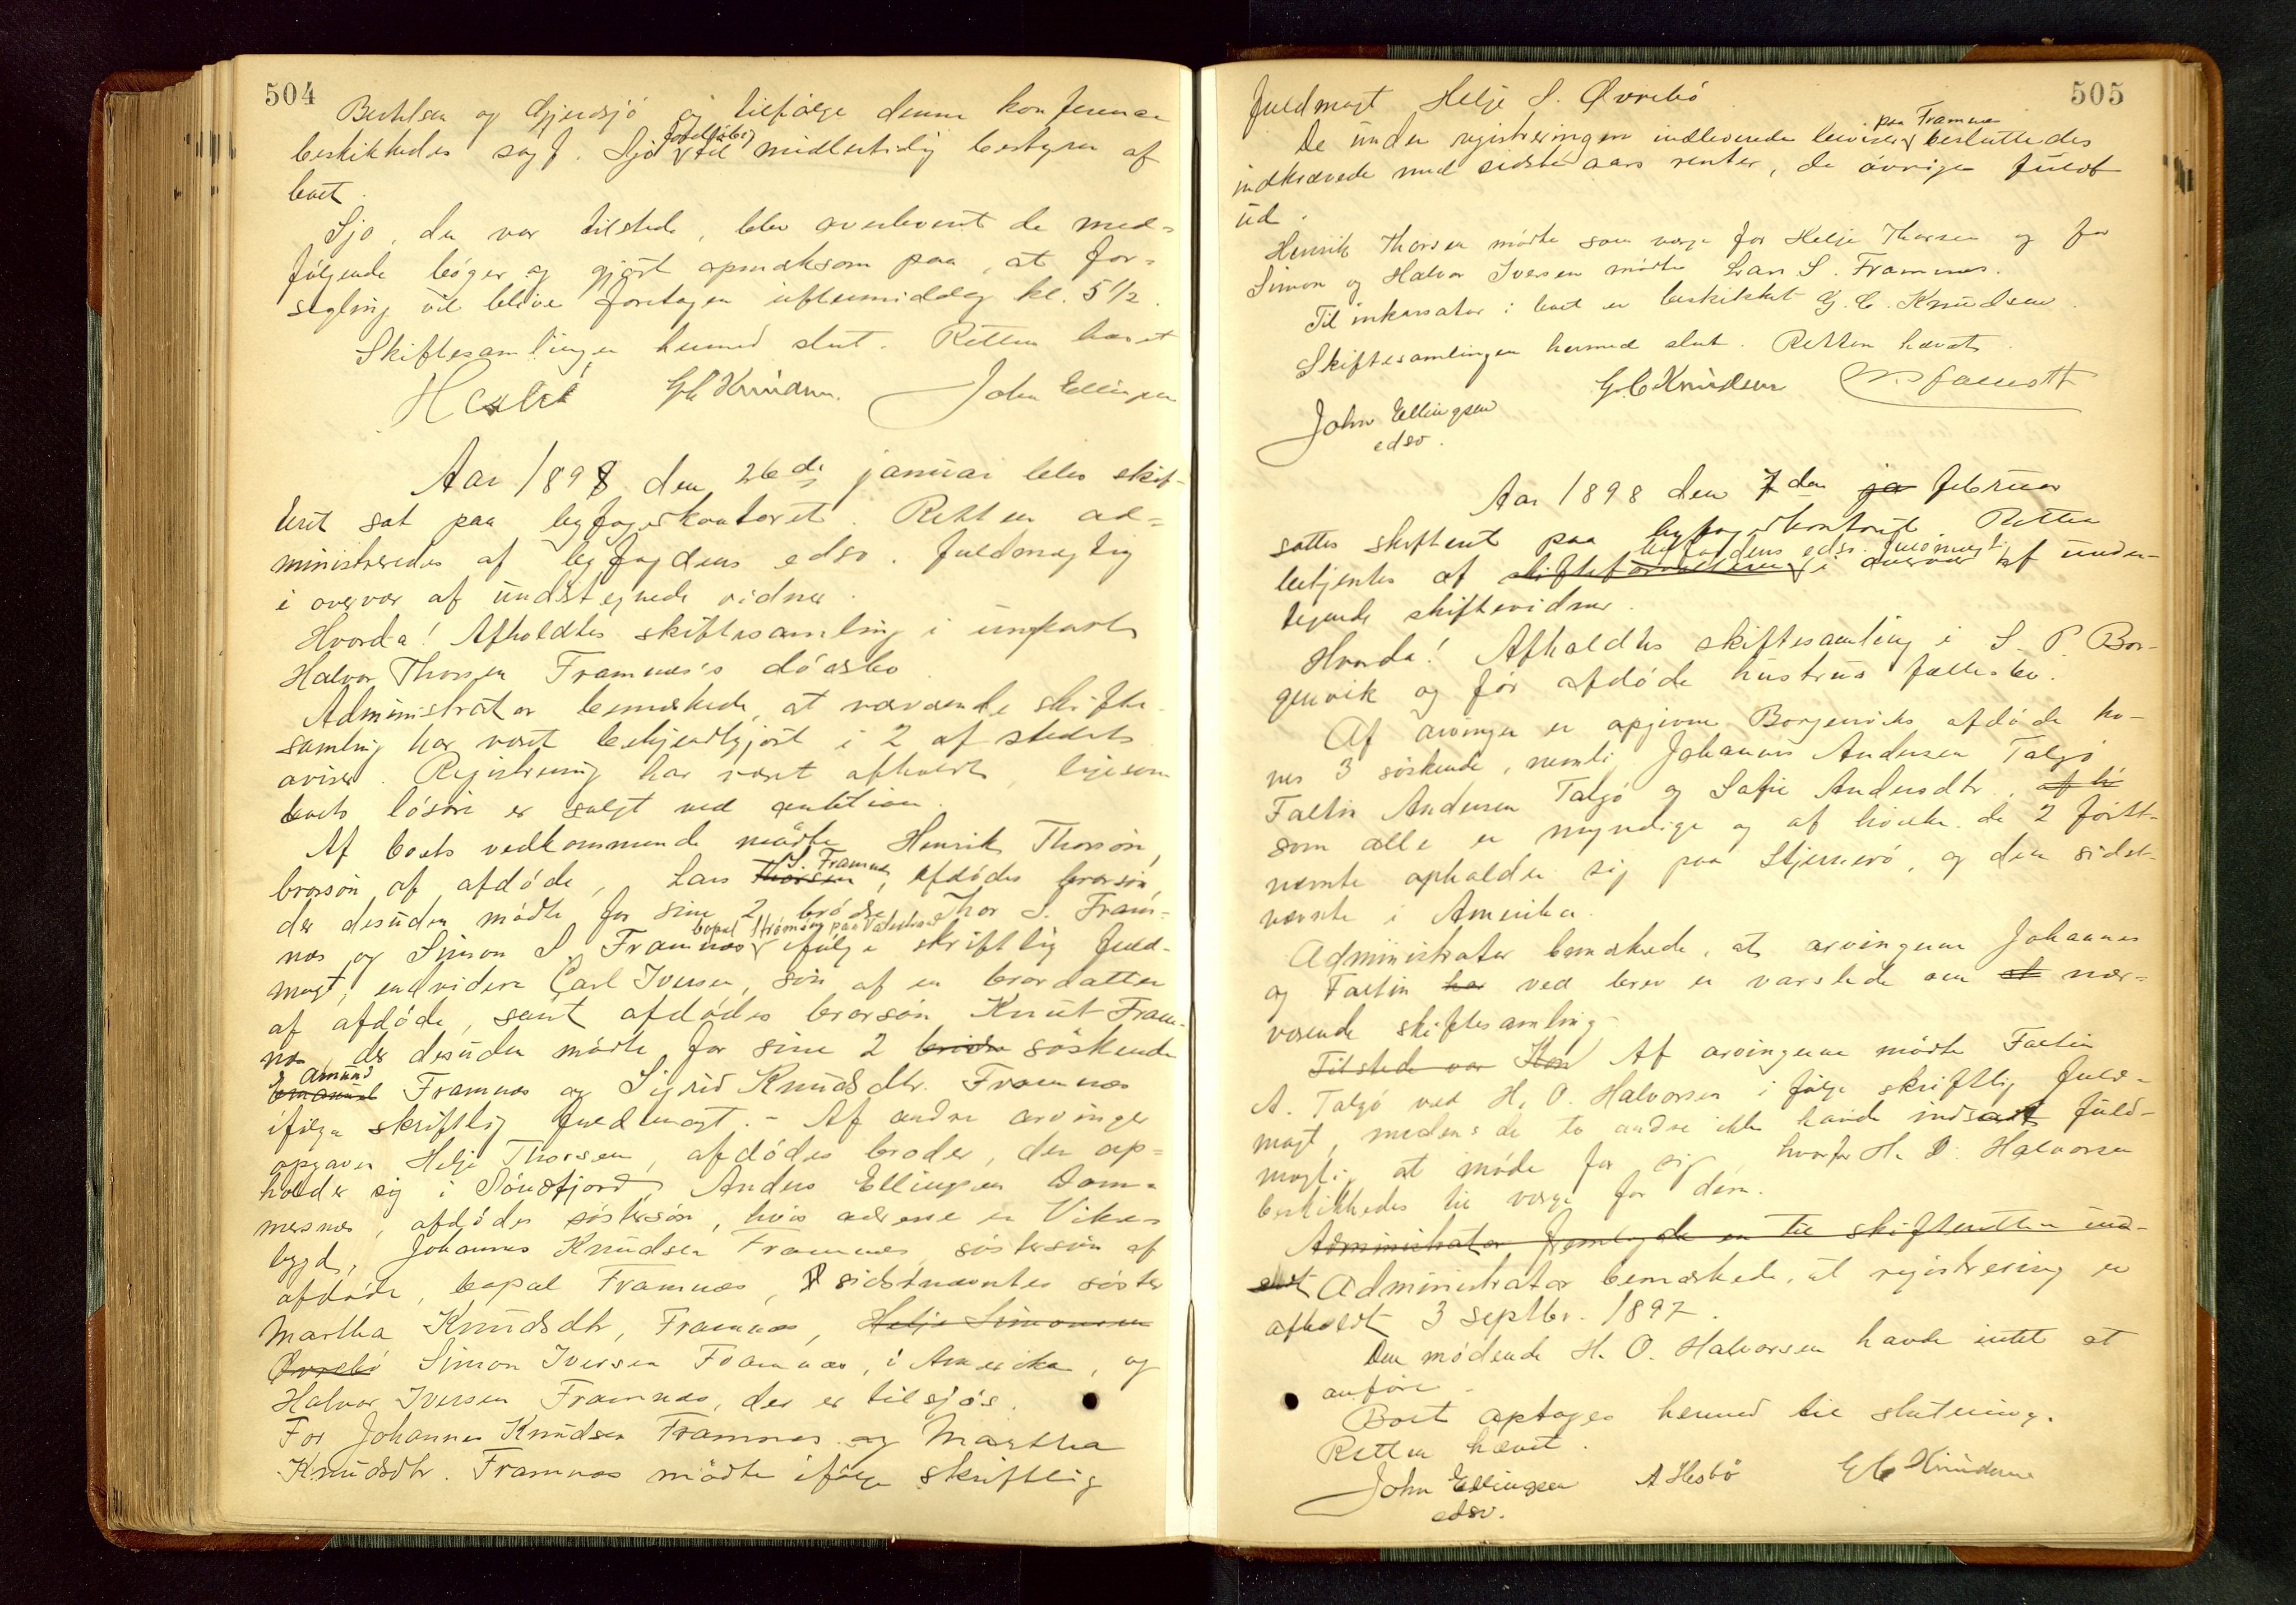 504
Berthlsen og Gjerdsjø og tilfølge denne konference
beskikkedes sagf. Sjø foreløbig til midlertidig bestyrer af
boet.
Sjø, der var tilstede, blev overlevert de med-
følgende bøger og gjort opmerksom paa, at for-
segling vil blive foretagen i eftermiddag kl. 5 1/2.
Skiftesamlingen hermed slut. Retten hævet
G C Knudsen. John Ellingsen
Aar 1898 den 26de januar blev skif-
teret sat paa byfogedkontoret. Retten ad-
ministreredes af byfogdens edsv. fuldmægtig
i overvær af undertegnede vidner.
Hvorda! Afholdtes skiftesamling i ungkarl
Halvor Thorsen Framnes's dødsbo.
Administrator bemerkede, at nærværende skifte-
samling har været bekjendtgjort i 2 af stedets
aviser. Registrering har været afholdt, ligesom
boets løsøre er solgt ved auktion.
Af boets vedkommende mødte Henrik Thorsøn,
brorsøn af afdøde, Lars Thorsen S. Framnes, afdødes brorsøn,
der desuden mødte for sine 2 brødre Thor S. Fram-
nes og Simon S. Framnes bopæl Strømøen paa Vatestraat ifølge skriftlig fuld-
magt, endvidere Carl Iversen, søn af en brordatter
af afdøde, samt afdødes brorsøn Knut Fram-
nes, der desuden mødte for sine 2 brødre søskende
Emanuel Amund Framnes og Sigrid Knudsdtr. Framnes
ifølge skriftlig fuldmagt. - Af andre arvinger
opgaves Helje Thorsen, afdødes broder, der op-
holder sig i Søndfjord, Anders Ellingsen Dom-
mersnes, afdødes søstersøn, hvis adresse er Vikes-
bygd, Johannes Knudsen Framnes, søstersøn af
afdøde, bopæl Framnes, sidstnævntes søster
Martha Knudsdtr, Framnes, Helje Simonsen
Øvrebø Simon Iversen Framnes, i Amerika, og
Halvor Iversen Framnes, der er tilsjøs.
For Johannes Knudsen Framnes og Martha
Knudsdtr. Framnes mødte ifølge skriftlig
505
fuldmagt Helje S. Øvrebø
De under registreringen indleverede beviser paa Framnes besluttedes
indkrævede med sidste aars renter, de øvrige fuldt
ud.
Henrik Thorsen mødte som verge for Helje Thorsen og for
Simon og Halvor Iversen mødte Lars S. Framnes.
Til inkassator i boet er beskikket G. C. Knudsen.
Skiftesamlingen hermed slut. Retten hævet.
G. C Knudsen
John Ellingsen
edsv.
Aar 1898 den 7 den ja februar
sattes skifteret paa byfogedkontoret. Retten
betjentes af skifteforvalteren byfogdens edsv. fuldmægtig i overvær af under-
tegnede skiftevidner.
Hvorda! Afholdtes skiftesamling i S. P. Bor-
genvik og før afdøde hustrus fællesbo.
Af arvinger er opgivne Borgenviks afdøde ko-
nes 3 søskende, nemlig Johannes Andersen Talgø
Faltin Andersen Talgø og Sofie Andersdtr. af h
som alle er myndige og af hvilke de 2 først-
nævnte opholder sig paa Stjernerø, og den sidst-
nævnte i Amerika.
Administrator bemerkede, at arvingerne Johannes
og Faltin har ved brev er varslede om at nær-
værende skiftesamling.
Tilstede var Kon Af arvingerne mødte Faltin
A. Talgø ved H. O. Halvorsen i følge skriftlig fuld-
magt, medens de to andre ikke havde indsat fuld-
mægtig at møde for sig, hvorfor H. O. Halvorsen
beskikkedes til værge for dem.
Administrator fremlagde en til skifteretten ind-
sendt Administrator bemærkede, at registrering er
afholdt 3 septbr. 1897.
Den mødende H. O. Halvorsen havde intet at
anføre.
Boet optoges hermed til slutning.
Retten hævet.
John Ellingsen A Hesbø G C Knudsen
edsv.